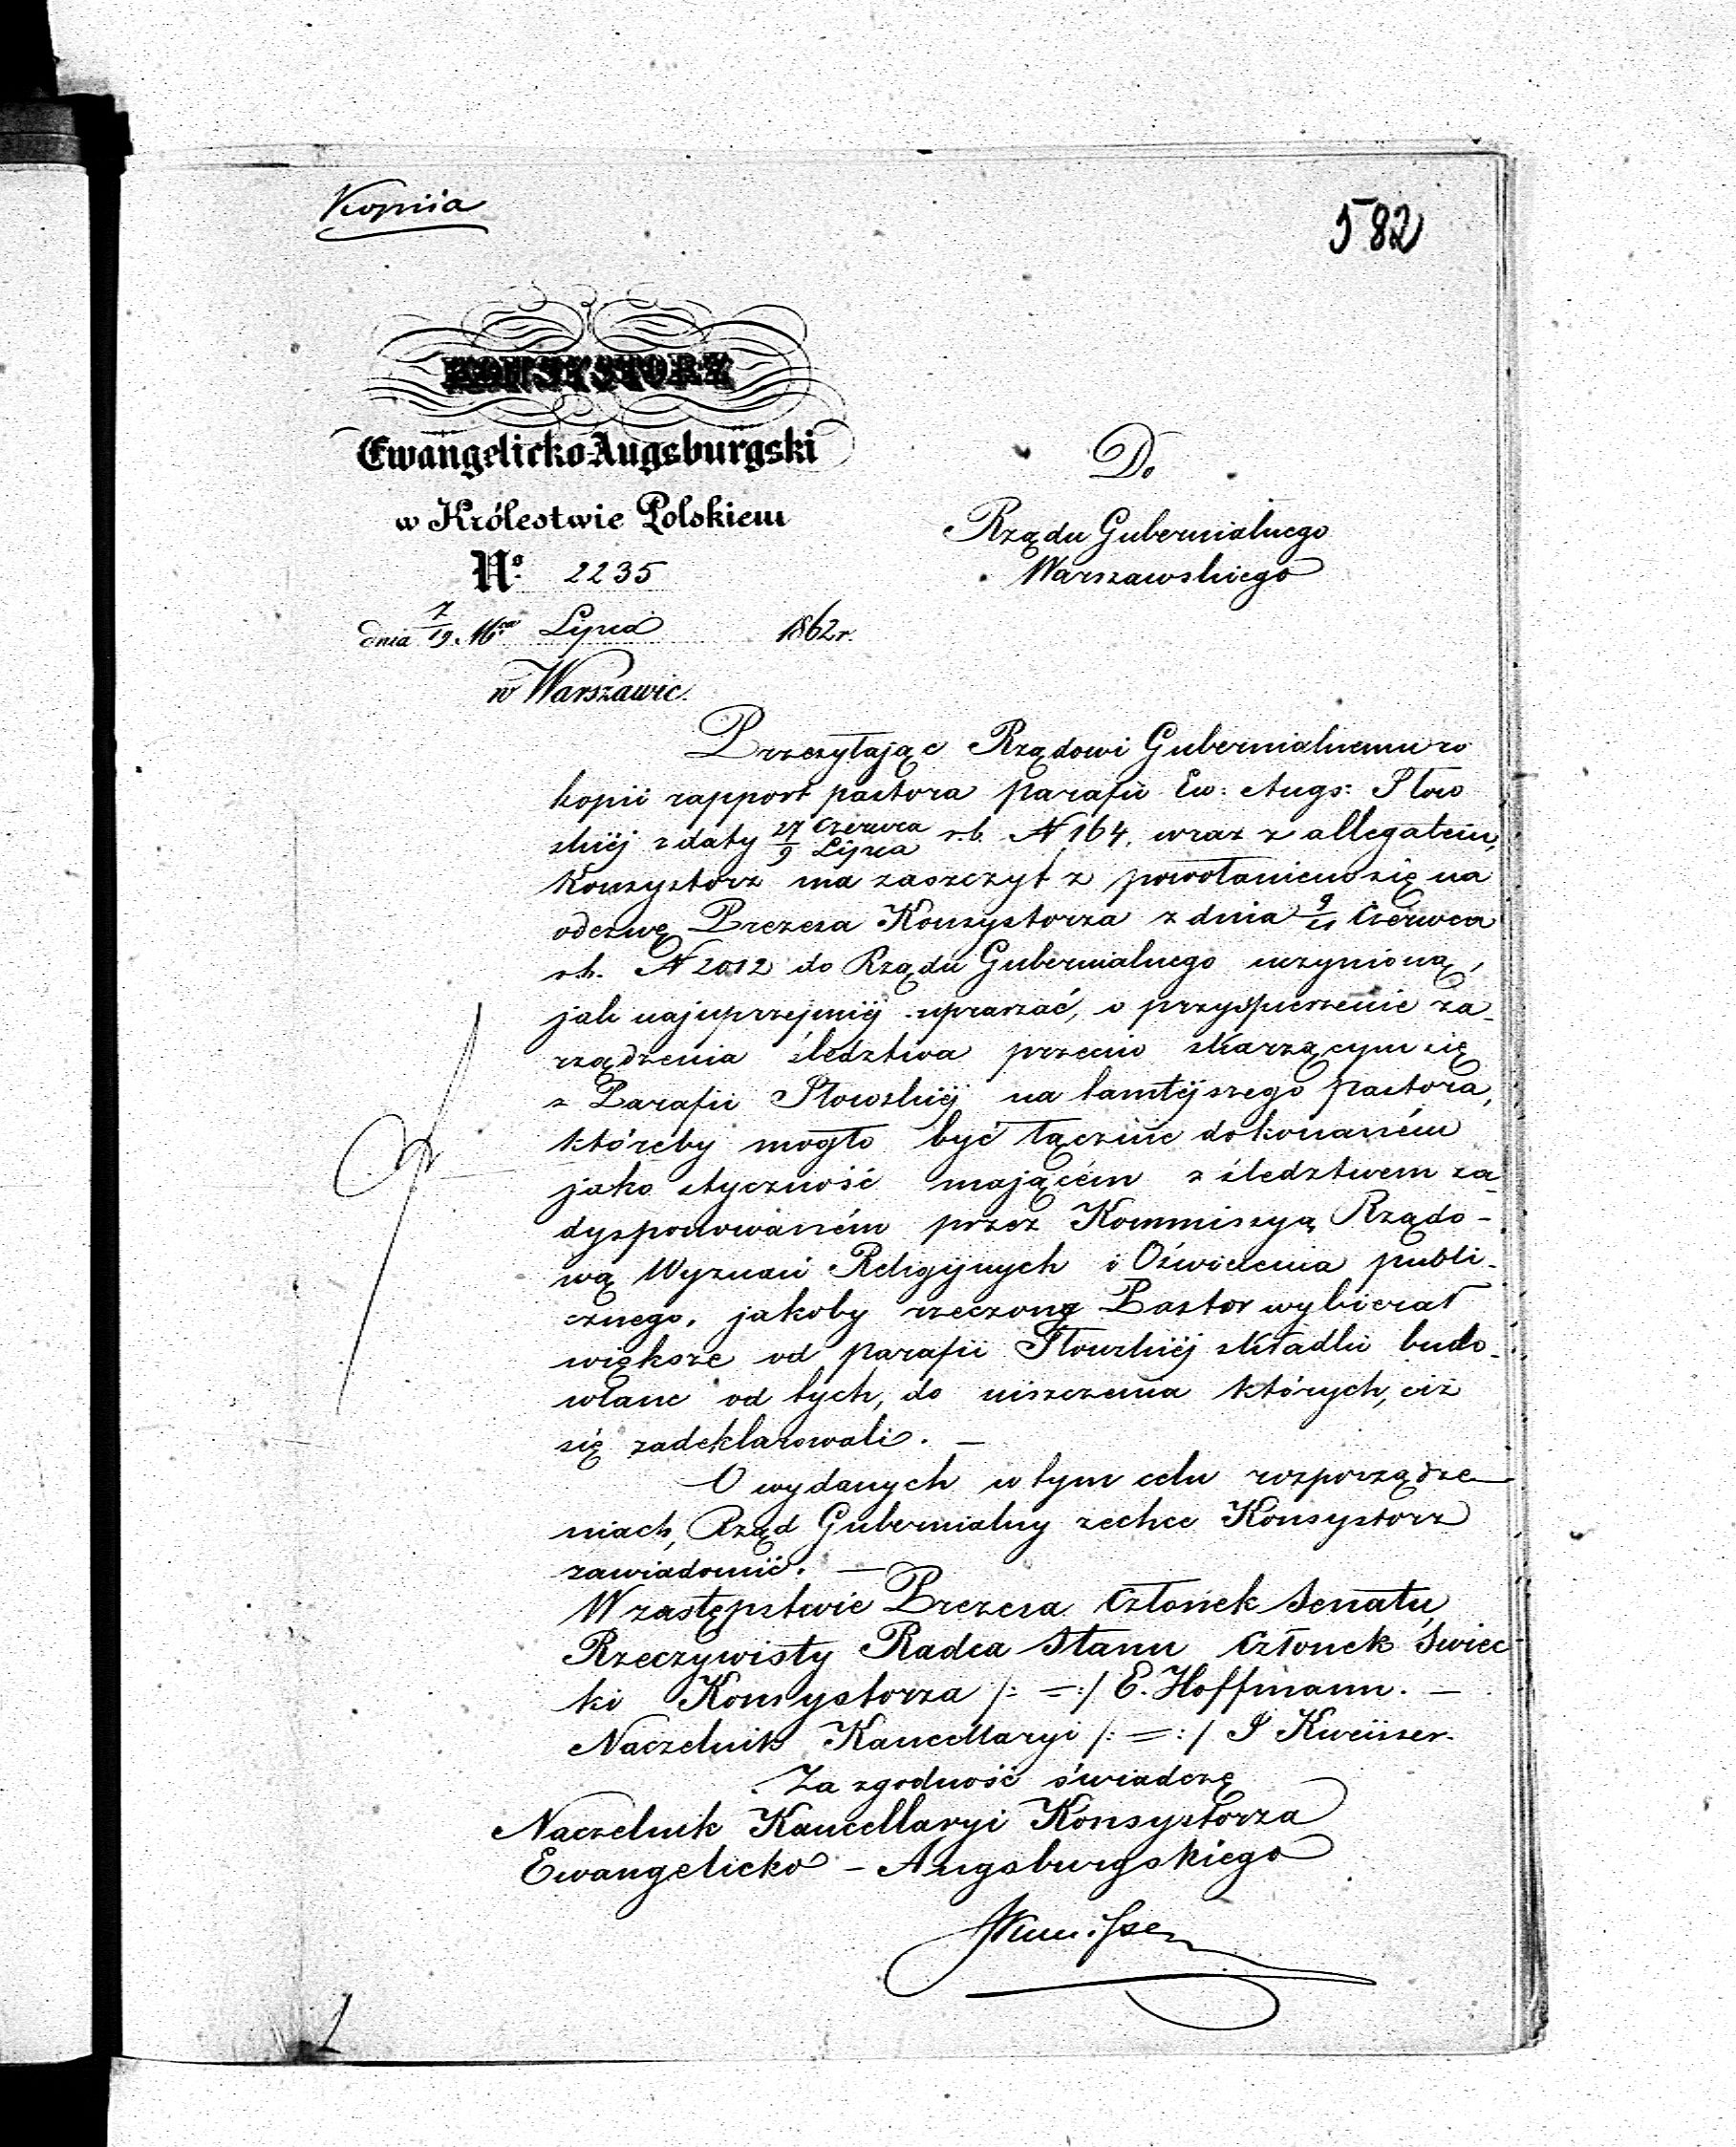 Kopiia
582
KONSYSTORZ
Ewangelicko-Augsburgski
w Królestwie Polskiem
No. 2235
dnia 7/19 Mca Lipca 1862 r.
w Warszawie.
Do
Rządu Gubernialnego
Warszawskiego
Przesyłając Rządowi Gubernialnemu w
kopii rapport pastora parafii Ew: Augs: Iłow
skiéj z daty 27 Czerwca/9 Lipca r.b. N 164. wraz z allegatem,
Konsystorz ma zaszczyt z powołaniem się na
odezwę Prezesa Konsystorza z dnia 9/21 Czerwca
r.b. N 2012 do Rządu Gubernialnego uczynioną,
jak najuprzejmiéj upraszać, o przyspieszenie za-
rządzenia śledztwa przeciw skarzącym się
z Parafii Iłowskiéj na tamtéjszego pastora,
któreby mogło być łącznie dokonaném
jako styczność mającém z śledztwem za-
dysponowaném przez Kommissyą Rządo-
wą Wyznań Religijnych i Oświecenia publi-
cznego, jakoby rzeczony Pastor wybierał
większe od parafii Iłowskiéj składki budo-
wlane od tych, do uiszczenia których, ciż
się zadeklarowali. —
O wydanych w tym celu rozporządze-
niach, Rząd Gubernialny zechce Konsystorz
zawiadomić. —
W zastępstwie Prezesa Członek Senatu,
Rzeczywisty Radca Stanu Członek Świec-
ki Konsystorza /: =:/ E. Hoffmann. —
Naczelnik Kancellaryi /: = :/ I
Za zgodność świadczę
Naczelnik Kancellaryi Konsystorza
Ewangelicko - Augsburgskiego
1